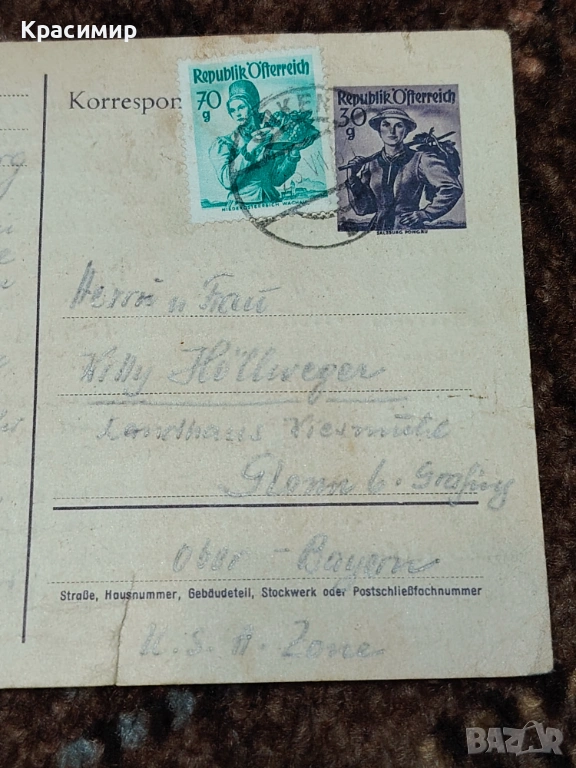 Красимир
Republik Österreich
70
g
NIEDERÖSTERREICH WACHAU
Republik Österreich
30
g
SALZBURG PONGAU
Korrespon
Herrn u Frau
Willy Höllweger
Landhaus Wiesmühl
Glonn b. Grafing
Ober-Bayern
Straße, Hausnummer, Gebäudeteil, Stockwerk oder Postschließfachnummer
U.S.A. Zone
BAZAR